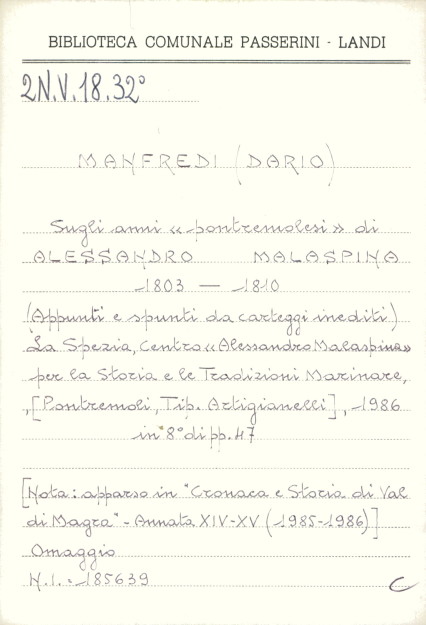 BIBLIOTECA COMUNALE PASSERINI - LANDI
2N.V.18.32°
MANFREDI (DARIO)
Sugli anni « pontremolesi » di
ALESSANDRO MALASPINA
1803 — 1810
(Appunti e spunti da carteggi inediti)
La Spezia, Centro «Alessandro Malaspina»
per la Storia e le Tradizioni Marinare,
,[Pontremoli, Tip. Artigianelli], 1986
in 8° di pp. 47
[Nota: apparso in "Cronaca e Storia di Val
di Magra" - Annata XIV-XV (1985-1986)]
Omaggio
N.I. : 185639
C